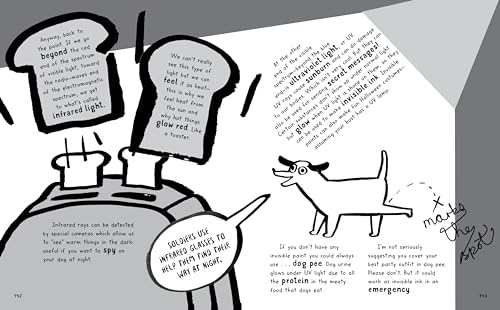 Anyway, back to
the point. If we go
beyond the red
end of the spectrum
of visible light, toward
the radio-waves end
of the electromagnetic
spectrum, we get
to what's called
infrared light.
We can't really
see this type of
light but we can
feel it as heat—
this is why we
feel heat from
the sun and
why hot things
glow red, like
a toaster.
Infrared rays can be detected
by special cameras which allow us
to "see" warm things in the dark:
useful if you want to spy on
your dog at night.
SOLDIERS USE
INFRARED GLASSES TO
HELP THEM FIND THEIR
WAY AT NIGHT.
142
At the other
end of the visible
spectrum—beyond the blue
end—is ultraviolet light, or UV.
UV rays cause sunburn and can do damage
to our bodies. Which isn't very cool. But they can
also be used for sending secret messages!
Certain substances don't show up under normal light
but glow when UV light is shone on them, so they
can be used to make invisible ink. Invisible
paints can also make for fun Halloween costumes—
assuming your host has a UV lamp.
If you don't have any
invisible paint you could always
use . . . dog pee. Dog urine
glows under UV light due to all
the protein in the meaty
food that dogs eat.
I'm not seriously
suggesting you cover your
best party outfit in dog pee.
Please don't. But it could
work as invisible ink in an
emergency
x
marks
the
spot
143